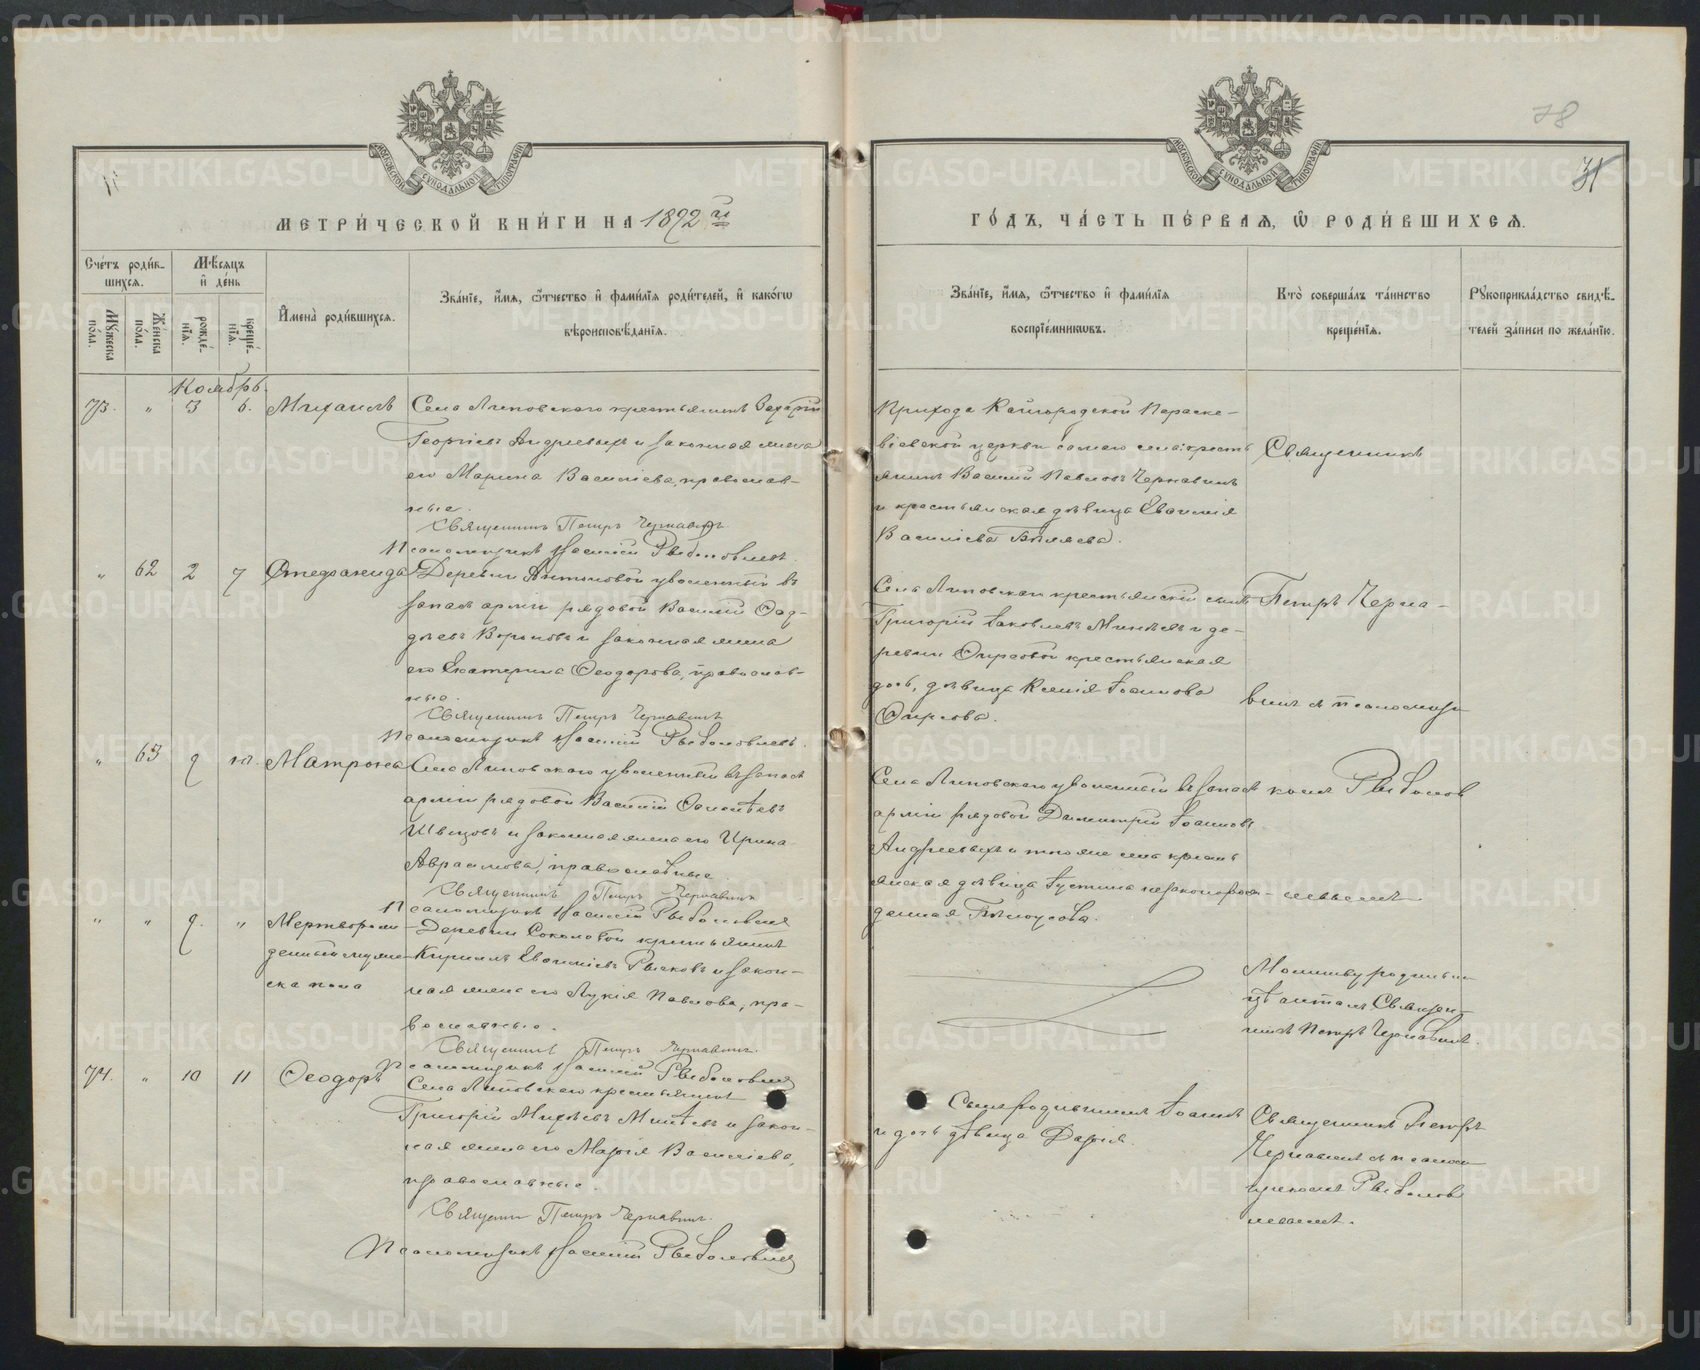 78
МЕТРИ́ЧЕСКОЙ КНИ́ГИ НА 1892 й
ГО́ДЪ, ЧА́СТЬ ПЕ́РВАЯ, Ѡ҆ РОДИ́ВШИХСЯ.
Сче́тъ роди́в-
шихся.
Му́жеска по́ла.
Же́нска по́ла.
Мѣ́сяцъ
и҆ де́нь
рожде́-нїя.
креще́-нїя.
И҆мена̀ роди́вшихся.
Зва́нїе, и҆́мя, ѻ҆́тчество и҆ фами́лїя роди́телей, и҆ како́гѡ
вѣроисповѣ́данїя.
Зва́нїе, и҆́мя, ѻ҆́тчество и҆ фами́лїя
воспрїе́мникѡвъ.
Кто̀ соверша́лъ та́инство
креще́нїя.
Рꙋкоприкла́дство свидѣ́-
телей за́писи по жела́нїю.
Ноябрь
73. " 3 6. Михаилъ
Села Липовскаго крестьянинъ Захарій
Георгіевъ Андреевыхъ и законная жена
его Марина Василіева, православ-
ные.
Священникъ Петръ Чернавинъ
Псаломщикъ Василій Рыболовлевъ
Прихода Кайгородской Параске-
віевской церкви самаго села крестья
янинъ Василій Павловъ Чернавинъ
и крестьянская дѣвица Евѳимія
Василіева Бѣляева.
Священникъ
" 62 2 7
Деревни Антоновой уволенный въ
запасъ арміи рядовой Василій Ѳад-
дѣевъ Вороновъ и законная жена
его Екатерина Ѳеодорова, православ-
ные.
Священникъ Петръ Чернавинъ
Псаломщикъ Василій Рыболовлевъ.
Села Липовскаго крестьянскій сынъ
Григорій Іаковлевъ Минѣевъ и де-
ревни Фирсовой крестьянская
дочь, дѣвица Ксенія Іоаннова
Фирсова.
Петръ Черна-
винъ съ псаломщи
" 63 9 10. Матрона
Села Липовскаго уволенный въ запасъ
арміи рядовой Василій
Швецовъ и законная жена его Ирина
Авраамова, православные.
Священникъ Петръ Чернавинъ
Псаломщикъ Василій Рыболовлевъ
Села Липовскаго уволенный въ запасъ
арміи рядовой Димитрій Іоанновъ
Андреевыхъ и того же села кресть
янская дѣвица Іустина незаконорож-
денная Бѣлоусова.
комъ Рыболов
левымъ
" " 9. " Мертворож-
денный муже-
ска пола
Деревни Соколовой крестьянинъ
Кириллъ Евѳиміевъ Рычковъ и закон-
ная жена его Лукія Павлова, пра-
вославные.
Священникъ Петръ Чернавинъ.
Псаломщикъ Василій Рыболовлевъ
Молитву родильни-
цѣ читалъ Священ-
никъ Петръ Чернавинъ.
74. " 10 11 Ѳеодоръ
Села Липовскаго крестьянинъ
Григорій Михѣевъ Минѣевъ и закон-
ная жена его Марія Василіева,
православные.
Священникъ Петръ Чернавинъ.
Псаломщикъ Василій Рыболовлевъ
Сынъ родившихъ Іоаннъ
и дочь дѣвица Дарія.
Священникъ Петръ
Чернавинъ съ псалом-
щикомъ Рыболов
левымъ.